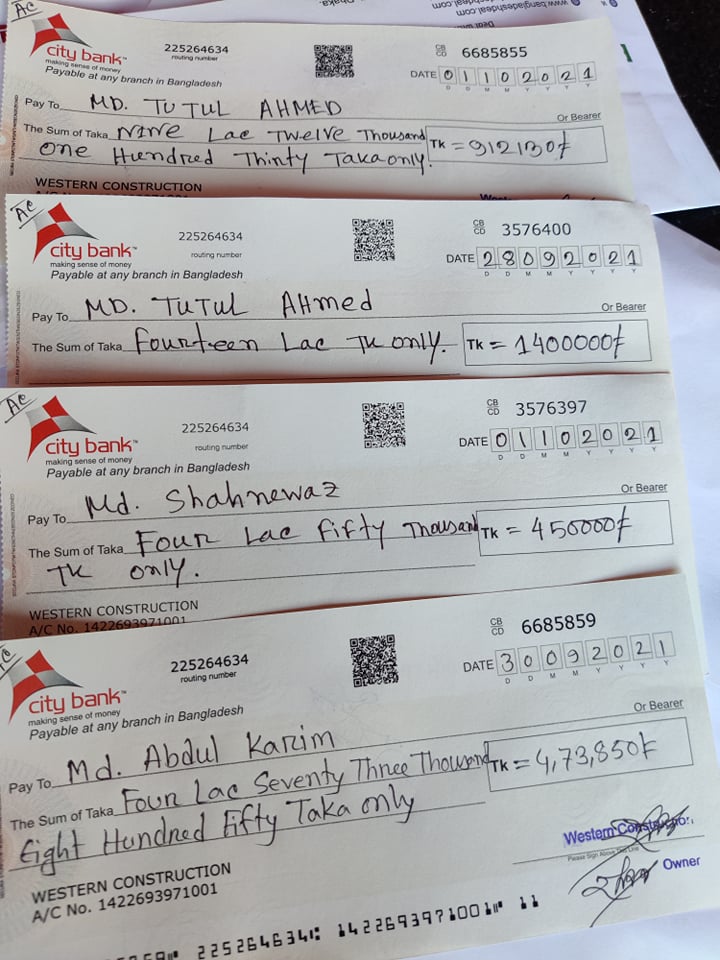 Dhaka.
www.bangladeshdeal.com
Ac
city bank™
making sense of money
Payable at any branch in Bangladesh
225264634
routing number
CB
CD 6685855
DATE 01102021
D D M M Y Y Y Y
Pay To MD. TUTUL AHMED
Or Bearer
The Sum of Taka Nine Lac Twelve Thousand
Tk = 912130/-
One Hundred Thirty Taka only.
WESTERN CONSTRUCTION
Ac
city bank™
making sense of money
Payable at any branch in Bangladesh
225264634
routing number
CB
CD 3576400
DATE 28092021
D D M M Y Y Y Y
Pay To MD. TUTUL AHmed
Or Bearer
The Sum of Taka Fourteen Lac Tk only.
Tk = 1400000/-
Ac
city bank™
making sense of money
Payable at any branch in Bangladesh
225264634
routing number
CB
CD 3576397
DATE 01102021
D D M M Y Y Y Y
Pay To Md. Shahnewaz
Or Bearer
The Sum of Taka Four Lac Fifty Thousand
Tk = 450000/-
TK only.
WESTERN CONSTRUCTION
A/C No. 1422693971001
city bank™
making sense of money
Payable at any branch in Bangladesh
225264634
routing number
CB
CD 6685859
DATE 30092021
D D M M Y Y Y Y
Pay To Md. Abdul Karim
Or Bearer
The Sum of Taka Four Lac Seventy Three Thousand
Tk = 4,73,850/-
Eight Hundred Fifty Taka only
WESTERN CONSTRUCTION
A/C No. 1422693971001
Western Construction
Please Sign Above This Line
Owner
225264634 1422693971001 11